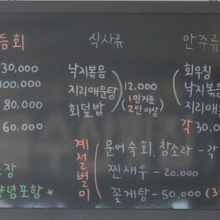 듬회
식사류
안주류
30,000
100,000
80,000
60,000
낙지볶음
지리매운탕
회덮밥
12,000
1인기준
(2인이상)
회무침
낙지볶음
지리매운
각 30,000
계절별미
문어숙회, 참소라 - 각
찐새우 - 20,000
꽃게탕 - 50,000 (3
포함 *